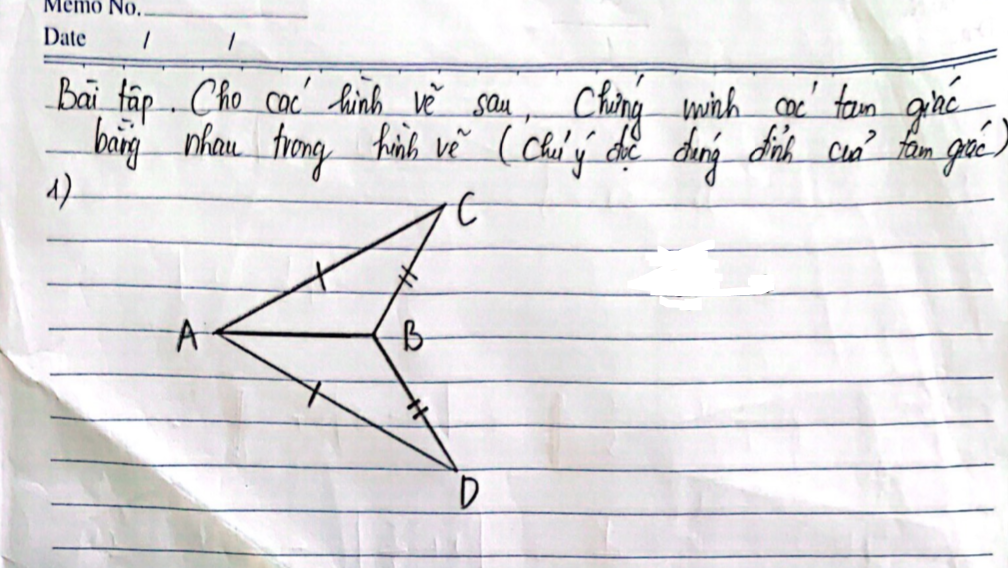 Memo No.
Date / /
Bài tập. Cho các hình vẽ sau, Chứng minh các tam giác
bằng nhau trong hình vẽ (Chú ý đọc đúng đỉnh của tam giác)
1)
C
A B
D